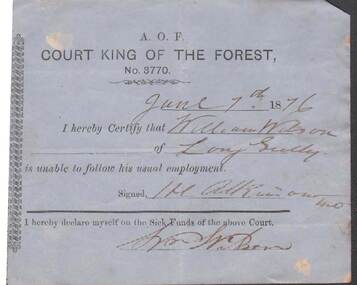 A. O. F.
COURT KING OF THE FOREST,
No. 3770.
June 7th 1876
I hereby Certify that William Wilson
of Long Gully
is unable to follow his usual employment.
Signed, H Atkinson MD
I hereby declare myself on the Sick Funds of the above Court,
Wm Wilson